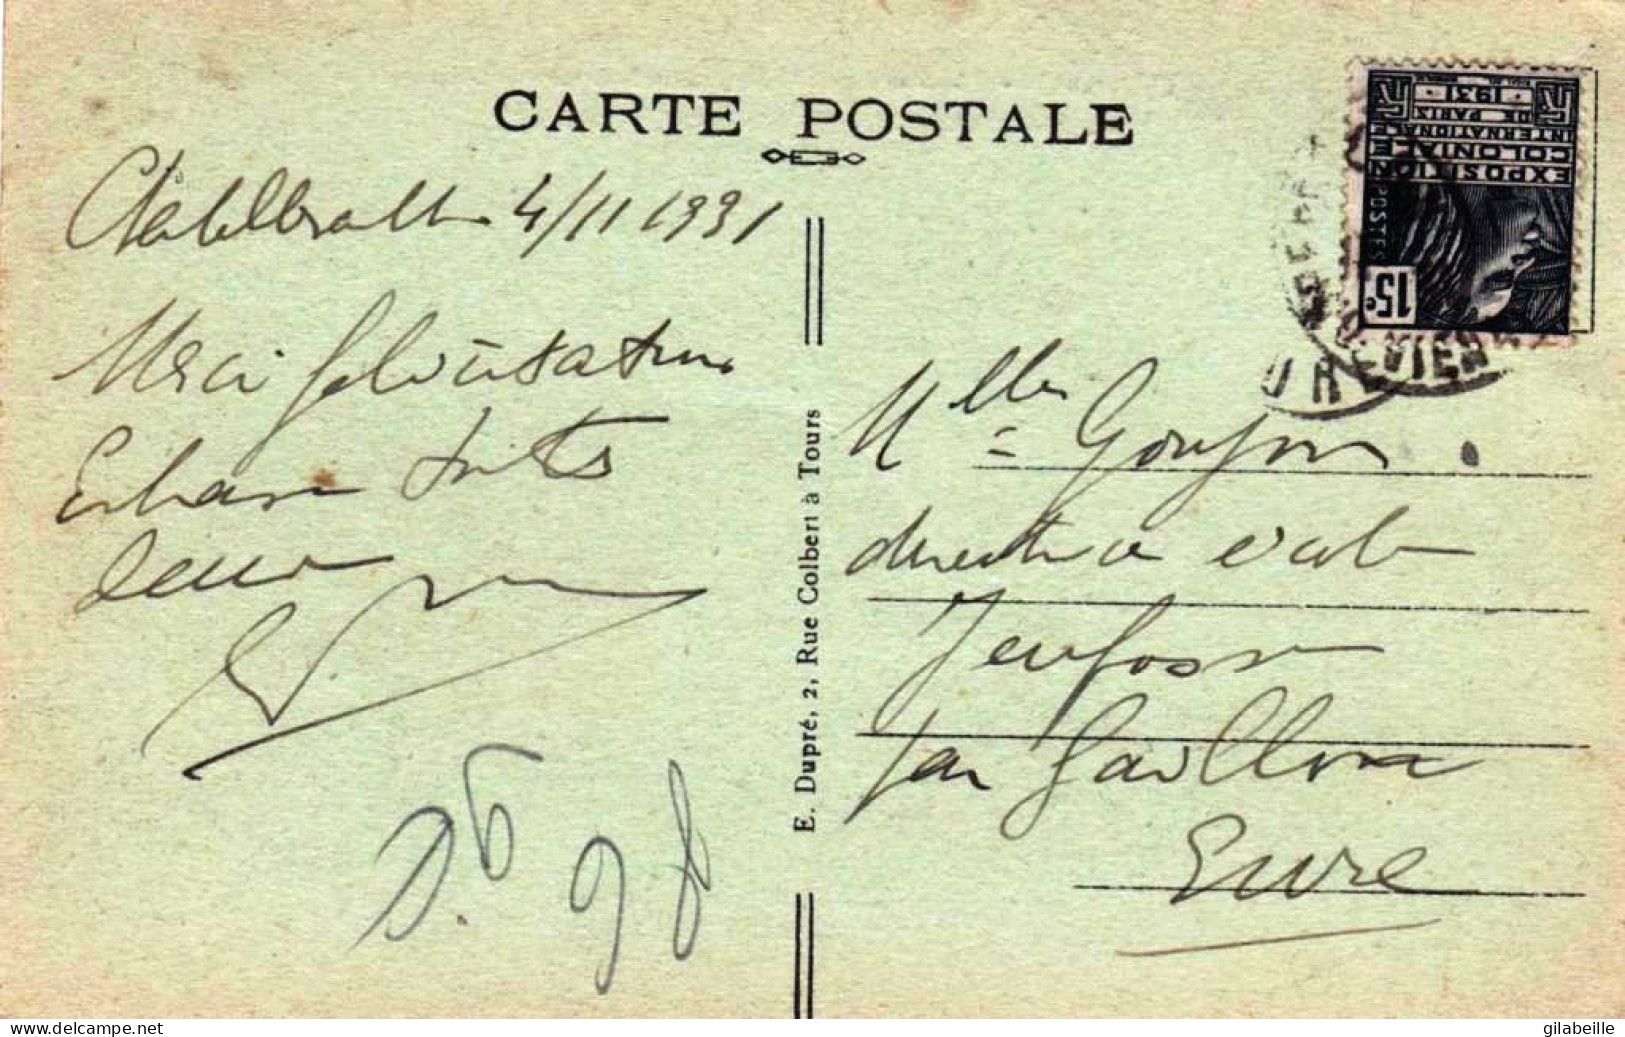 CARTE POSTALE
Châtellerault 4/11 1931
Merci félicitations
toutes
deux
E. Dupré, 2, Rue Colbert à Tours
EXPOSITION
COLONIALE
INTERNATIONALE
DE PARIS
1931
POSTES
15c
VIENNE
Mlle Goujon
directrice école
Jeufosse
par Gaillon
Eure
www.delcampe.net
gilabeille